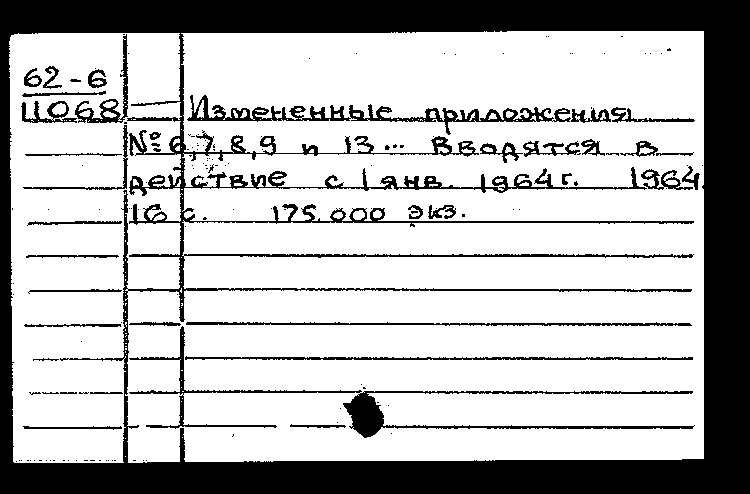 62-6
11068 — Измененные приложения
№ 6,7,8,9 и 13... Вводятся в
действие с 1 янв. 1964 г. 1964.
16 с. 175.000 экз.